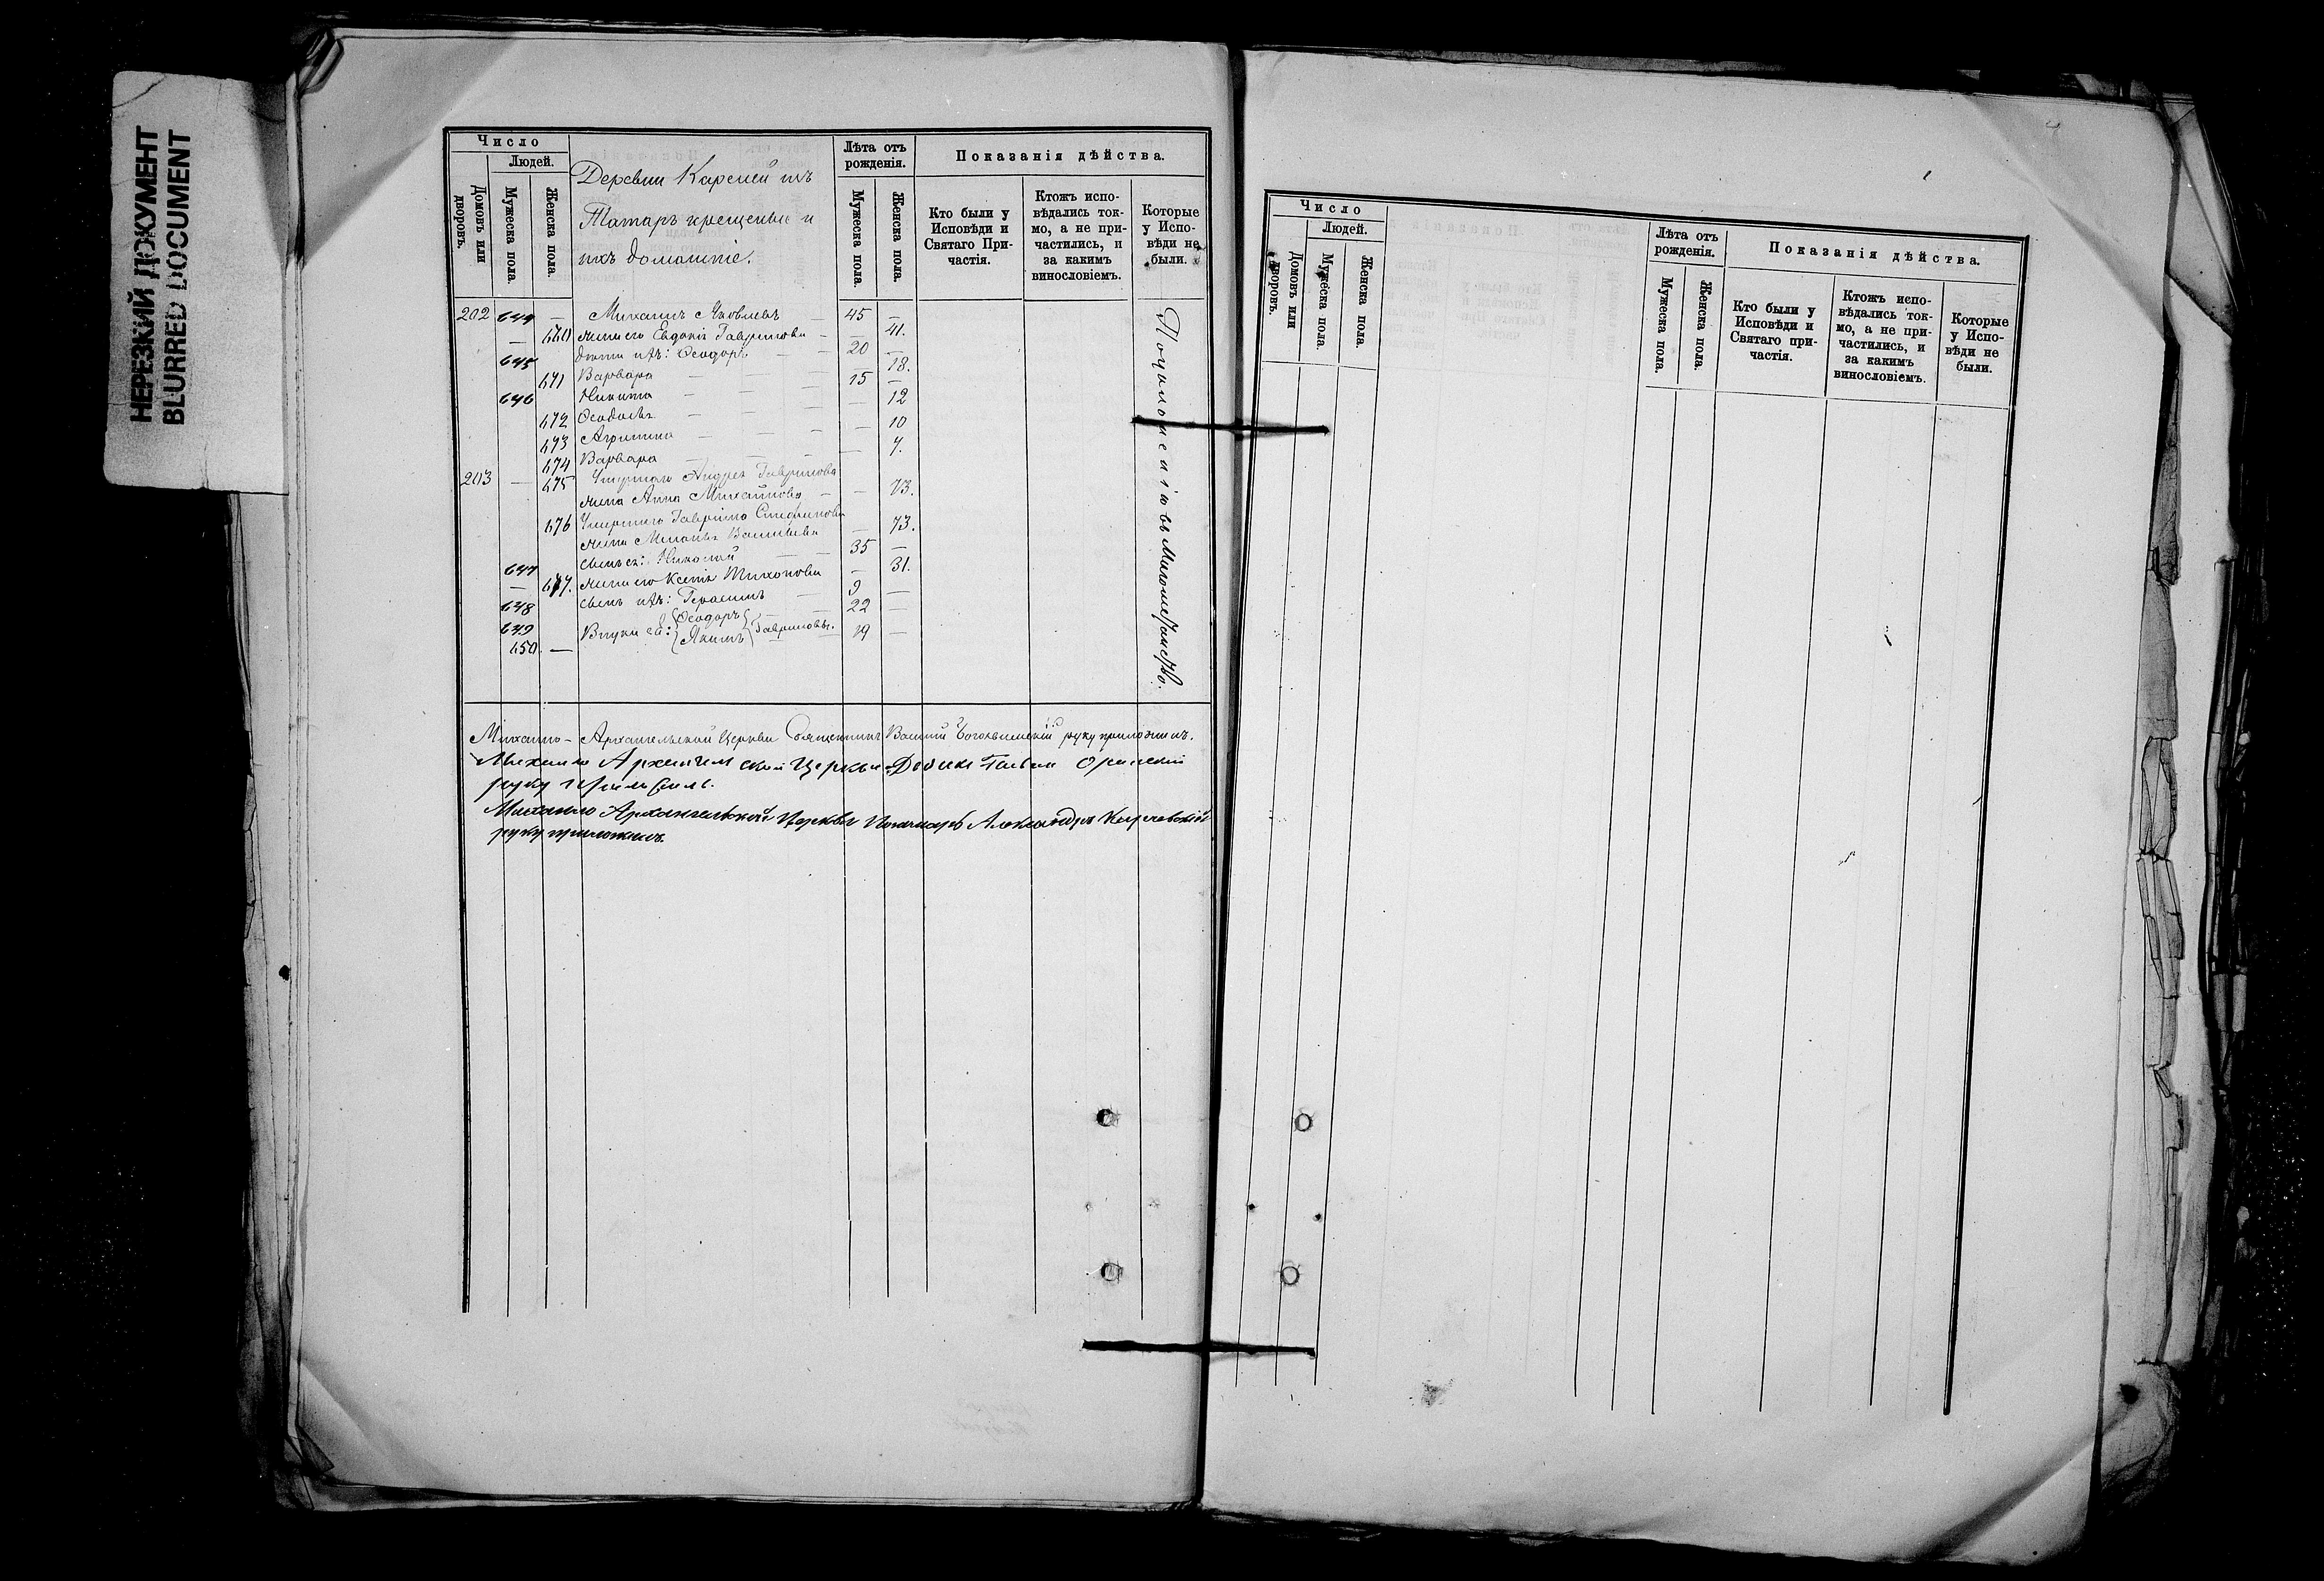 НЕРЕЗКИЙ ДОКУМЕНТ
BLURRED DOCUMENT
Число
Людей.
Домовъ или дворовъ.
Мужеска пола.
Женска пола.
Деревни
Татаръ крещеные и
ихъ домашніе.
Лѣта отъ рожденія.
Мужеска пола.
Женска пола.
Показанія дѣйства.
Кто были у Исповѣди и Святаго Причастія.
Ктожъ исповѣдались токмо, а не причастились, и за какимъ винословіемъ.
Которые у Исповѣди не были.
202 644 — Михаилъ Яковлевъ — 45 —
— жена его Евдокія Гаврилова — 41.
645 дѣти ихъ: Ѳеодоръ — 20 —
671 Варвара — 18.
646 Никита — 15 —
672 Ѳеодосья — 12
673 Агрипина — 10
674 Варвара — 7.
203 — 675 Умершаго Андрея Гаврилова
жена Анна Михайлова — 73.
676 Умершаго Гавріила Стефанова
жена Васильева — 73.
647 сынъ ея: Николай — 35 —
— 677. жена его Ксенія Тихонова — 31.
648 сынъ ихъ: Герасимъ — 9 —
649 Внуки ея: Ѳеодоръ 22 —
650. — Якимъ Гавриловы. 19 —
По уклоненію въ Магометанство.
Михаило-Архангельской Церкви Священникъ Василій Богоявленскій руку приложилъ.
Михаило Архангельской Церкви Павелъ
руку приложилъ.
Михаило Архангельской Церкви Пономарь Александръ
руку приложилъ.
Число
Людей.
Домовъ или дворовъ.
Мужеска пола.
Женска пола.
Лѣта отъ рожденія.
Мужеска пола.
Женска пола.
Показанія дѣйства.
Кто были у Исповѣди и Святаго причастія.
Ктожъ исповѣдались токмо, а не причастились, и за какимъ винословіемъ.
Которые у Исповѣди не были.